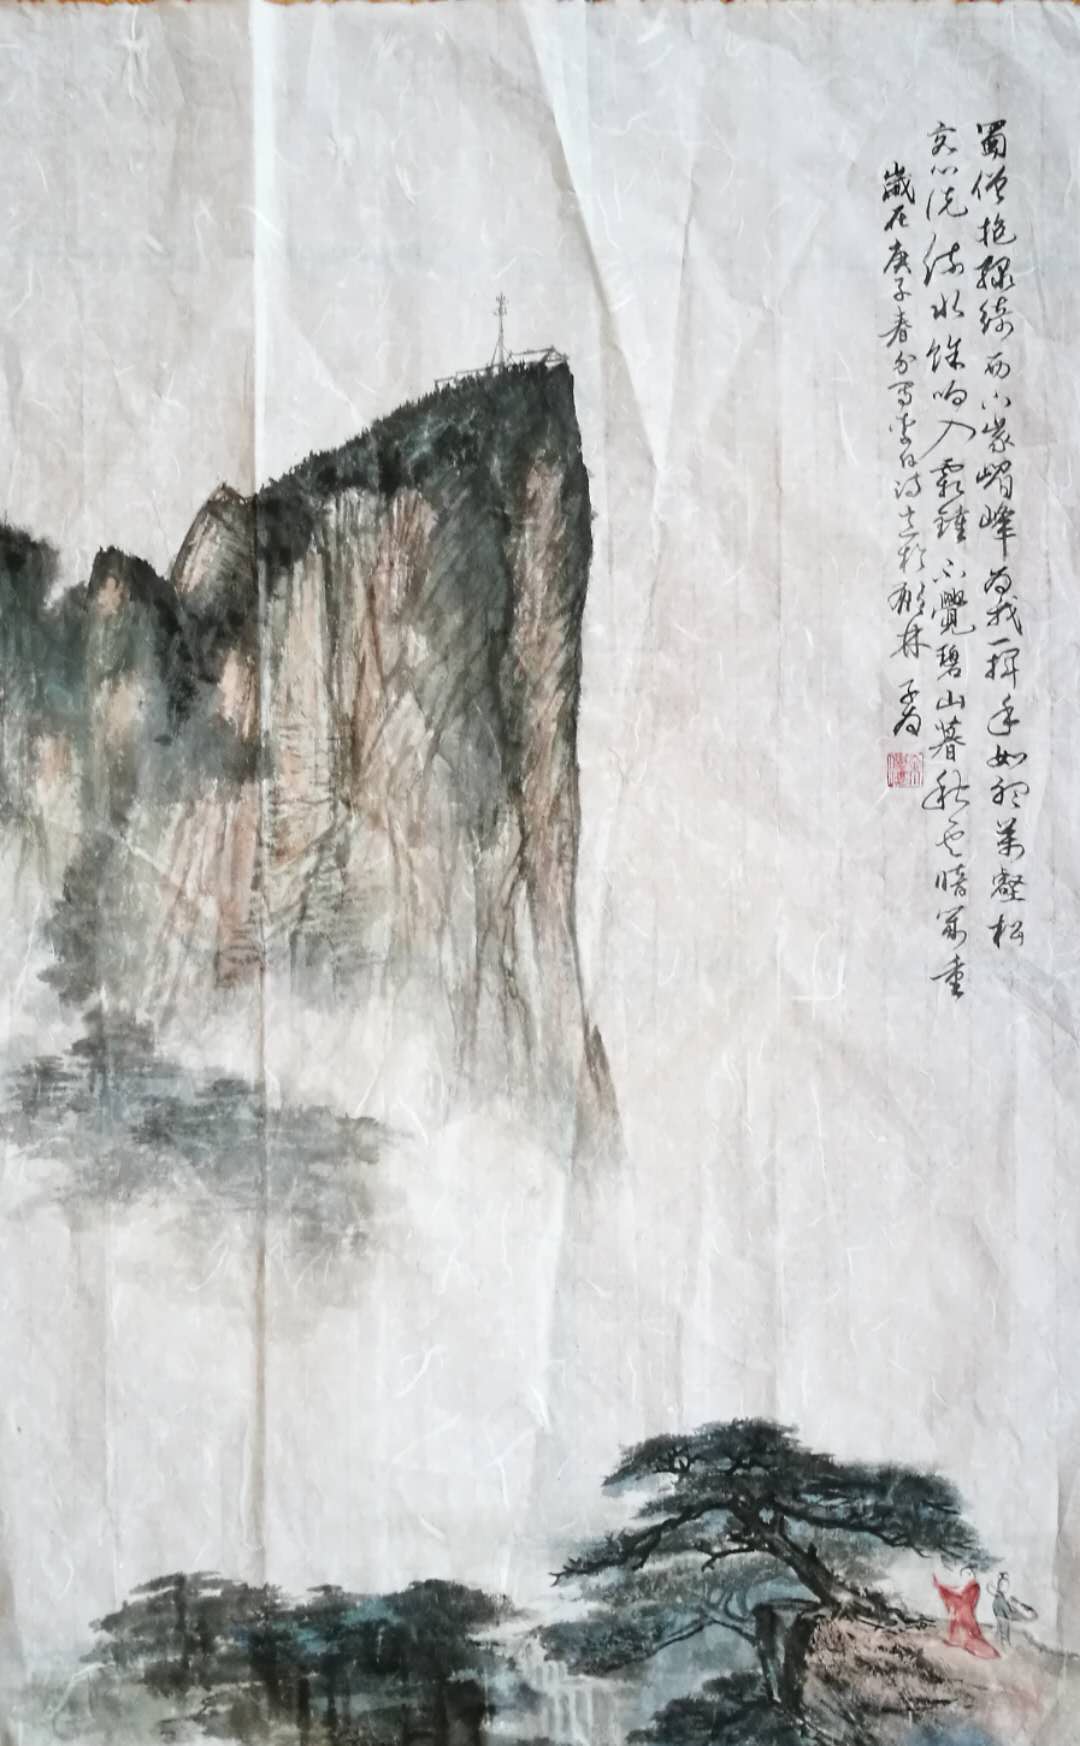 蜀僧抱綠綺西下峨嵋峰为我一挥手如听萬壑松
客心洗流水馀响入霜鐘不覺碧山暮秋云暗幾重
歲在庚子春分写李白诗意於林子为